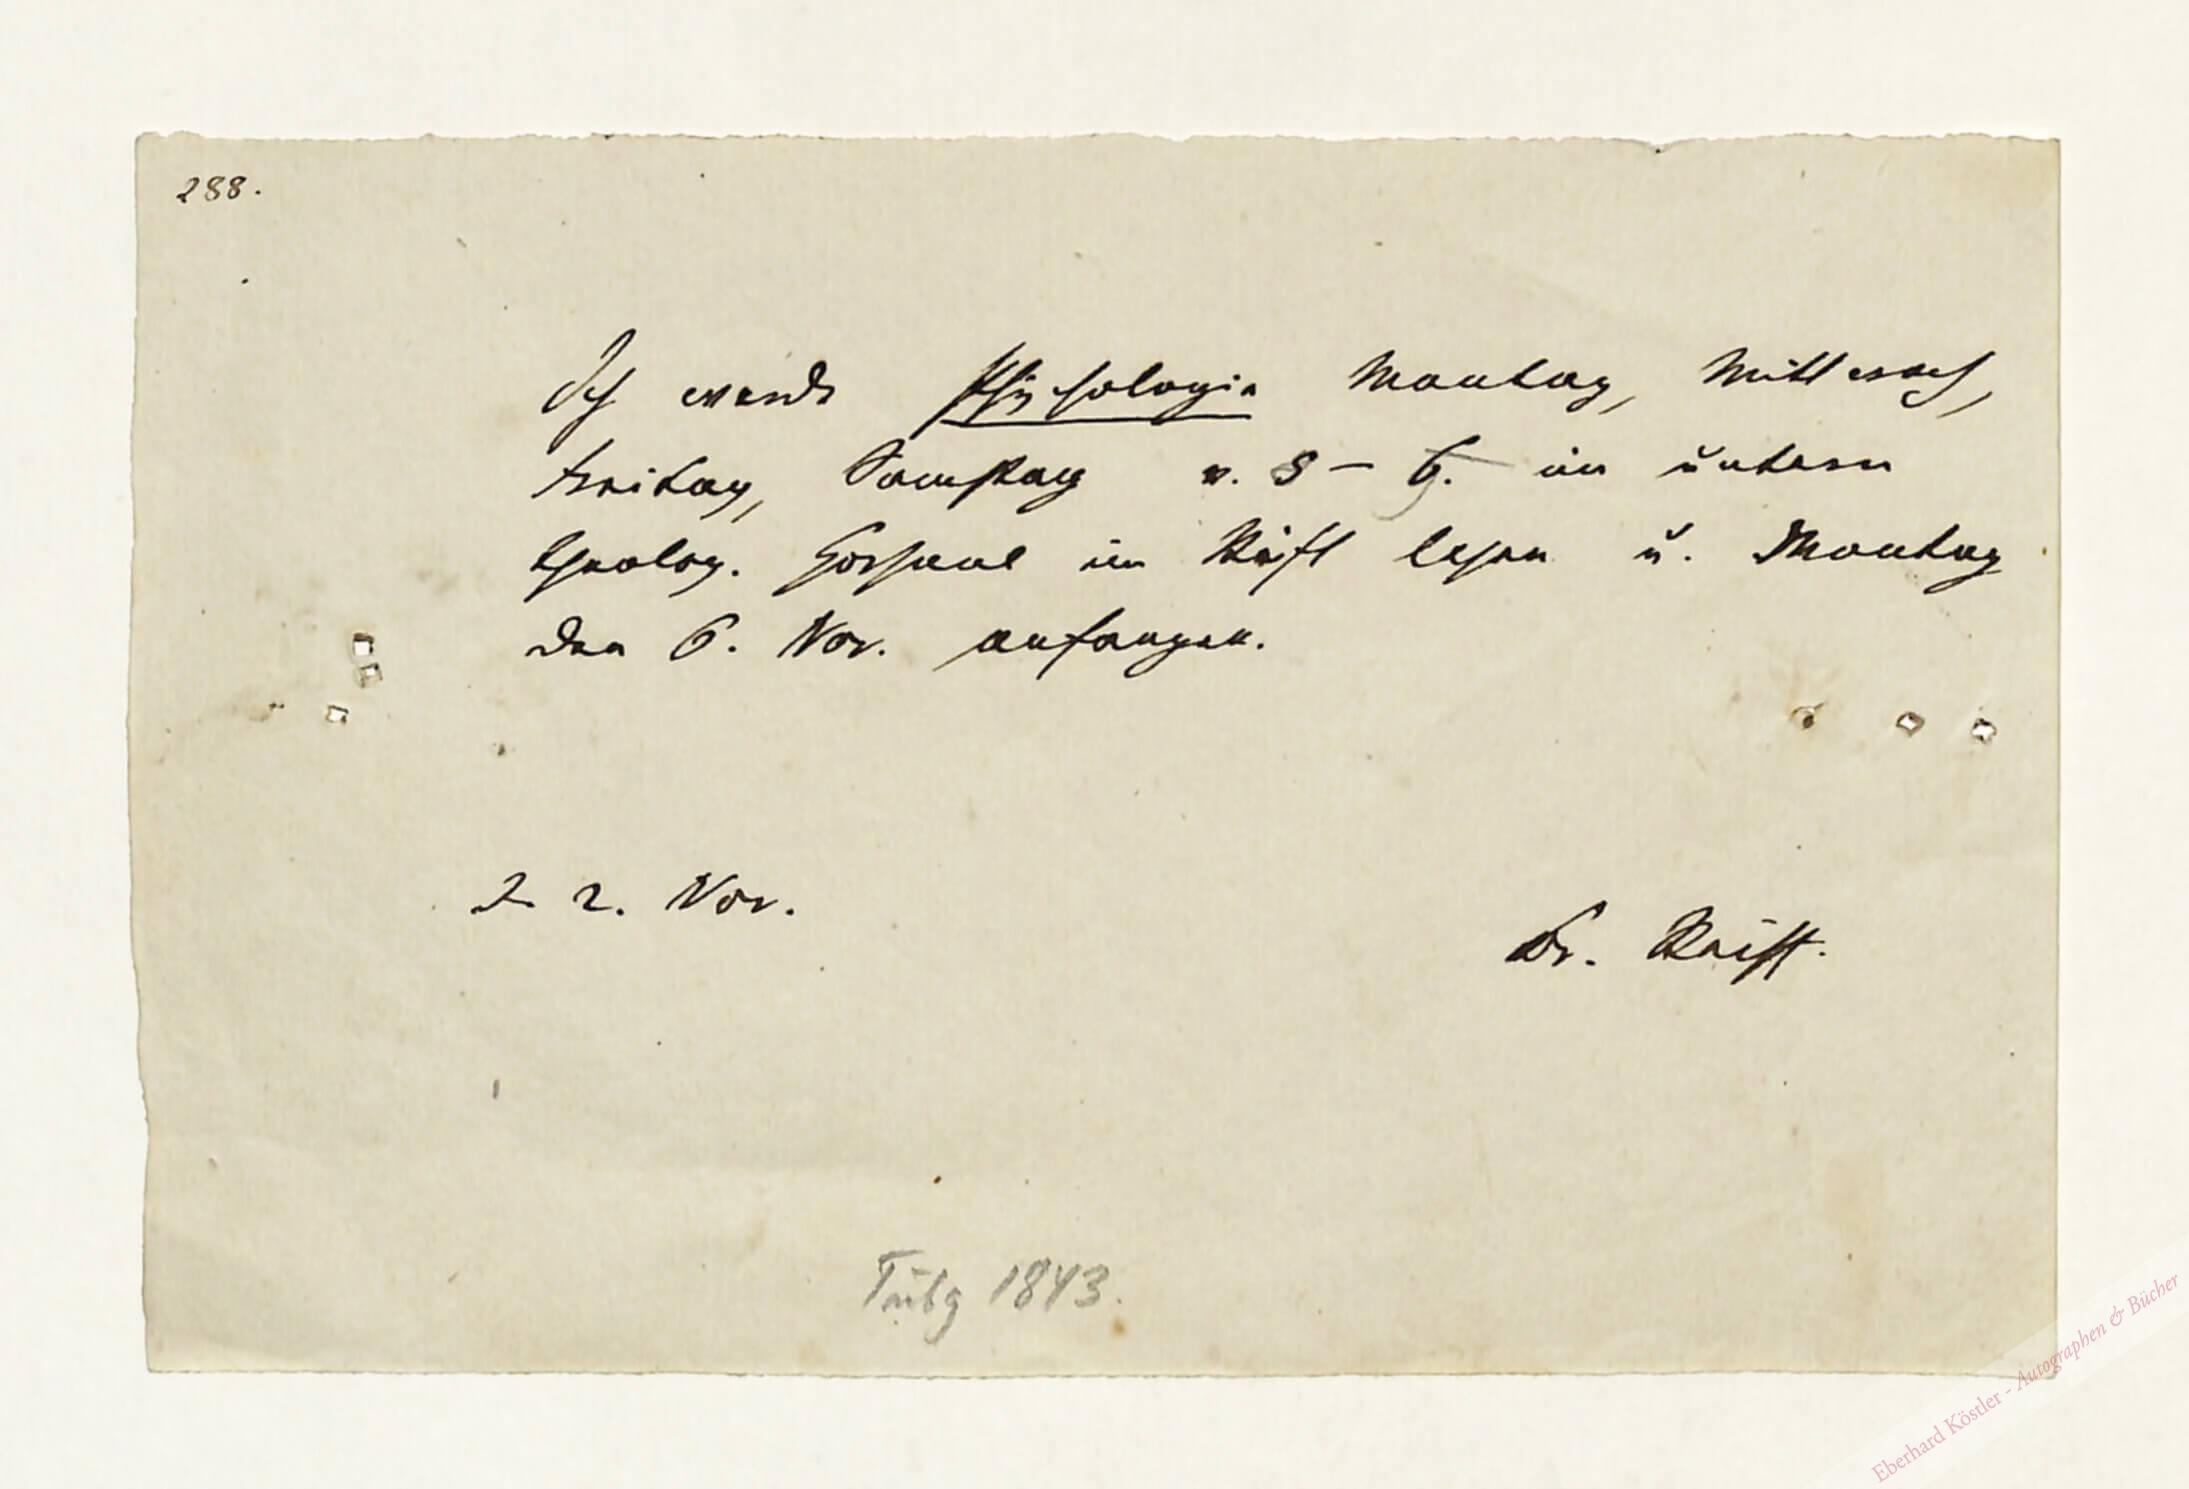 288.
Ich werde Psychologie Montag, Mittwoch,
Freitag, Samstag v. – im untern
theolog. Hörsaal im Stift lesen u. Montag
den 6. Nov. anfangen.
d. 2. Nov.
Dr. Reiff.
Tübg 1843.
Eberhard Köstler - Autographen & Bücher